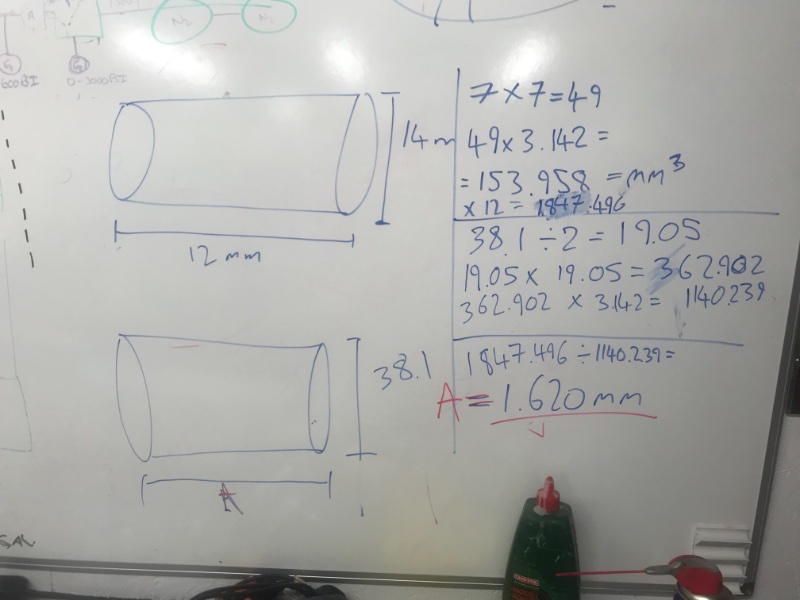 N₂ N₂
G G
600PSI 0-3000PSI
14m
12 mm
7 x 7 = 49
49 x 3.142 =
= 153.958 = mm³
x 12 = 1847.496
38.1 ÷ 2 = 19.05
19.05 x 19.05 = 362.902
362.902 x 3.142 = 1140.239
38.1
A
1847.496 ÷ 1140.239 =
A = 1.620 mm